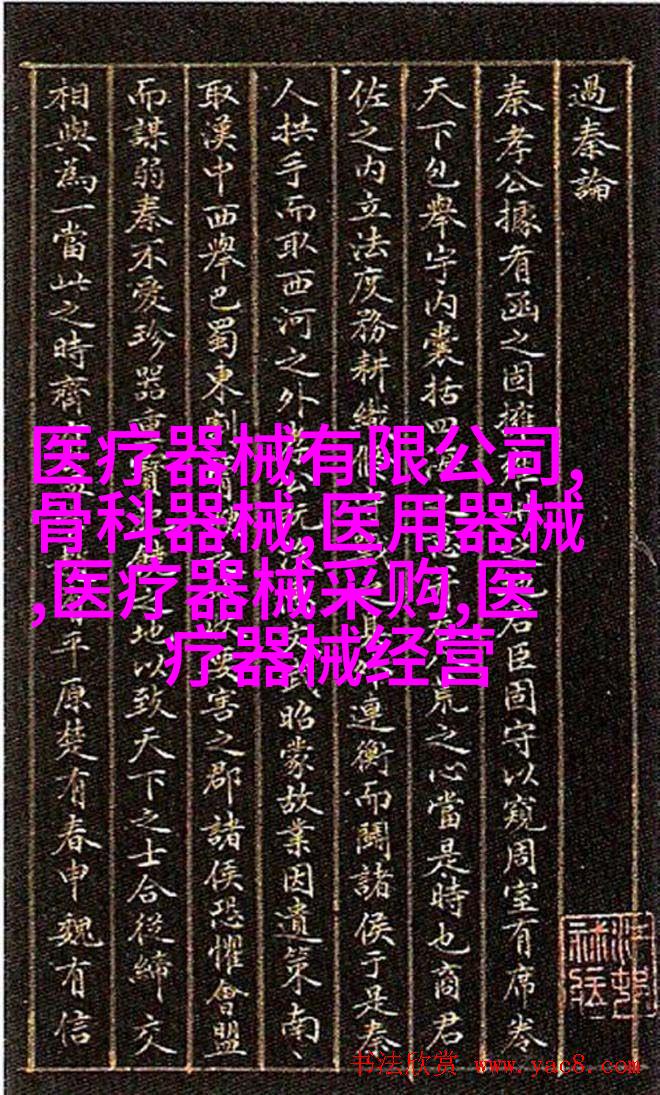 過秦論
秦孝公據肴函之固擁君臣固守以窺周室有席卷
天下包舉宇内囊括四荒之心當是時也商君
佐之内立法度務耕織連衡而鬪諸侯于是秦
人拱手而取西河之外昭蒙故業因遺策南
取漢中西舉巴蜀東割要害之郡諸侯恐懼會盟
而謀弱秦不愛珍器重寶地以致天下之士合從締交
相與為一當此之時齊平原楚有春申魏有信
医疗器械有限公司,
骨科器械,医用器械
,医疗器械采购,医
疗器械经营
书法欣赏 www.yac8.com